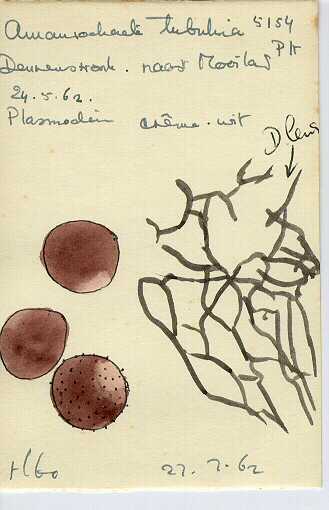 Amaurochaete tubulina 5154
PH
Dennenstronk. naar Mooiland
24.5.62.
Plasmodiën crême-wit
27.7.62